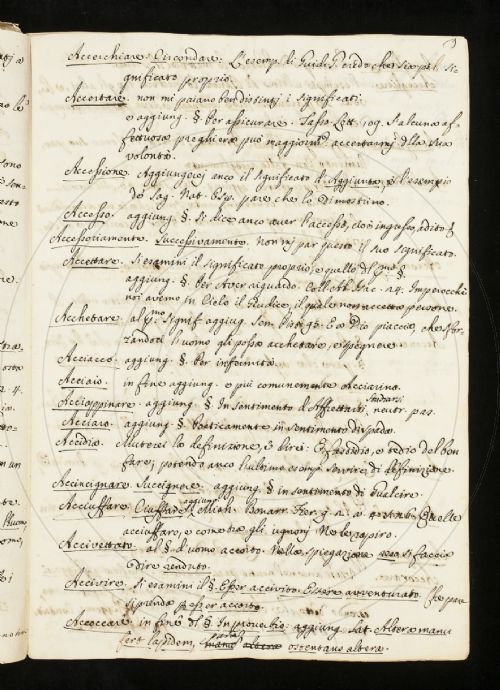 3
Accerchiare. Circondare. L'esemp. di Guid. G. credo che sia più si-
gnificato proprio.
Accertare. non mi paiano ben distinti i significati.
e aggiung. §. Per assicurare. Tass. Lett. 109. Se alcuno af-
fettuosa preghiera può maggiorm.te accertarmi della sua
volontà.
Accessione. Aggiungerei anco il significato di Aggiunta, e l'esempio
de' Sag. Nat. Esp. pare che lo dimostrino.
Accesso. aggiung. §. Si dice anco aver l'accesso, cioè ingresso, adito &
Accessoriamente. Successivamente. Non mi par questo il suo significato.
Accettare. Si esamini il significato proprio, e quello del p.mo §.
aggiung. §. Per Aver riguardo. Collett. 24. Imperocchè
noi avemo in Cielo il Giudice, il quale non accetta persone.
Acchetare. al p.mo signif. aggiug. Sen. Pist. 96. E a Dio piaccia, che sfor-
zandosi l'uomo gli possa acchetare, e spegnere.
Acciacco. aggiung. §. Per infermità.
Acciaio. in fine aggiung. e più comunemente acciarino.
Acciappinare. aggiung. §. In sentimento d'Affrettarsi, neutr. pas.
Acciaro. aggiung. §. Poeticamente in sentimento di spada.
Accidia. Muterei la definizione, e direi: Fastidio, e tedio del ben
fare; potendo anco l'ultimo esempio servire di definizione.
Accincignare. Succignere. aggiung. § in sentimento di Gualcire.
Acciuffare. Ciuffare. aggiung. Mich. Bonarr. Fier. g. 2. a. E volte
acciuffaro, e come tra gli ugnoni Ne le rapiro.
Accivettato. al § d'uomo accorto. Nella spiegazione si faccia
dire renduto.
Accivire. Si esamini il §. Esser accivito. Essere avventurato. Che par
Accoccare. in fine del §. In proverbio: aggiung. Lat. Altera manu
fert lapidem, panem ostentans altera.